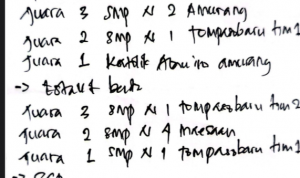 Juara 3 SMP N 2 Amurang
Juara 2 SMP N 1 tompasobaru tim 1
Juara 1 Katolik Aquino amurang
-> estafet beda
Juara 3 SMP N 1 tompasobaru tim 2
Juara 2 SMP N 4
Juara 1 SMP N 1 tompasobaru tim 1